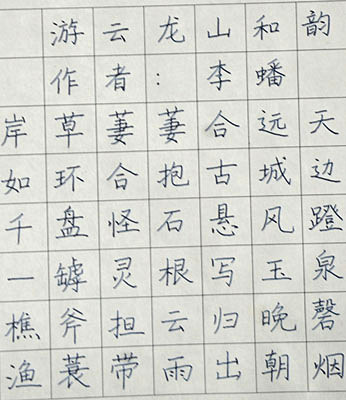 游云龙山和韵
作者：李蟠
岸草萋萋合远天
如环合抱古城边
千盘怪石悬风蹬
一罅灵根写玉泉
樵斧担云归晚磬
渔蓑带雨出朝烟